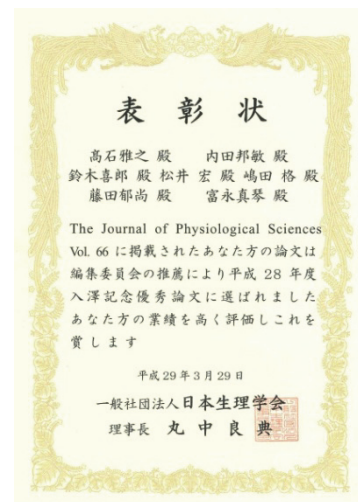 表彰状
高石雅之 殿 内田邦敏 殿
鈴木喜郎 殿 松井 宏 殿 嶋田 格 殿
藤田郁尚 殿 富永真琴 殿
The Journal of Physiological Sciences
Vol. 66 に掲載されたあなた方の論文は
編集委員会の推薦により平成 28 年度
入澤記念優秀論文に選ばれました
あなた方の業績を高く評価しこれを
賞します
平成 29 年 3 月 29 日
一般社団法人日本生理学会
理事長 丸中良典